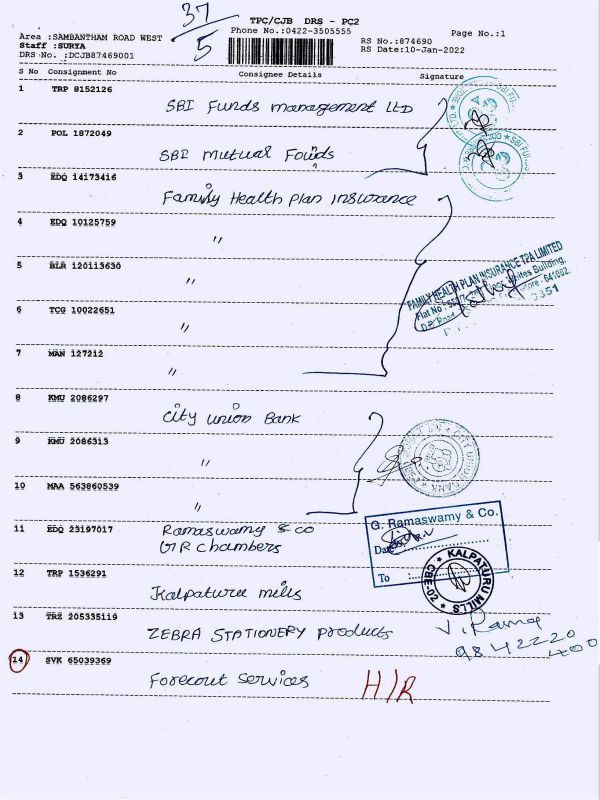 37/5
TPC/CJB DRS - PC2
Phone No.:0422-3505555
Page No.:1
Area :SAMBANTHAM ROAD WEST
RS No.:874690
Staff :SURYA
RS Date:10-Jan-2022
DRS No. :DCJB87469001
S No Consignment No Consignee Details Signature
1 TRP 8152126
SBI Funds management LTD
2 POL 1872049
SBI mutual Founds
3 EDQ 14173416
Family Health plan insurance
4 EDQ 10125759
"
5 BLR 120113630
"
FAMILY HEALTH PLAN INSURANCE TPA LIMITED
6 TCG 10022651
"
7 MAN 127212
"
8 KMU 2086297
City union Bank
9 KMU 2086313
"
10 MAA 563860539
"
11 EDQ 23197017
Ramaswamy & co
G. Ramaswamy & Co.
GR Chambers
To
12 TRP 1536291
KALPATURU MILLS
CBE-02
Kalpaturu mills
13 TRZ 205335119
ZEBRA STATIONERY products
9842220
400
14 SVK 65039369
Forecout Services
H/R